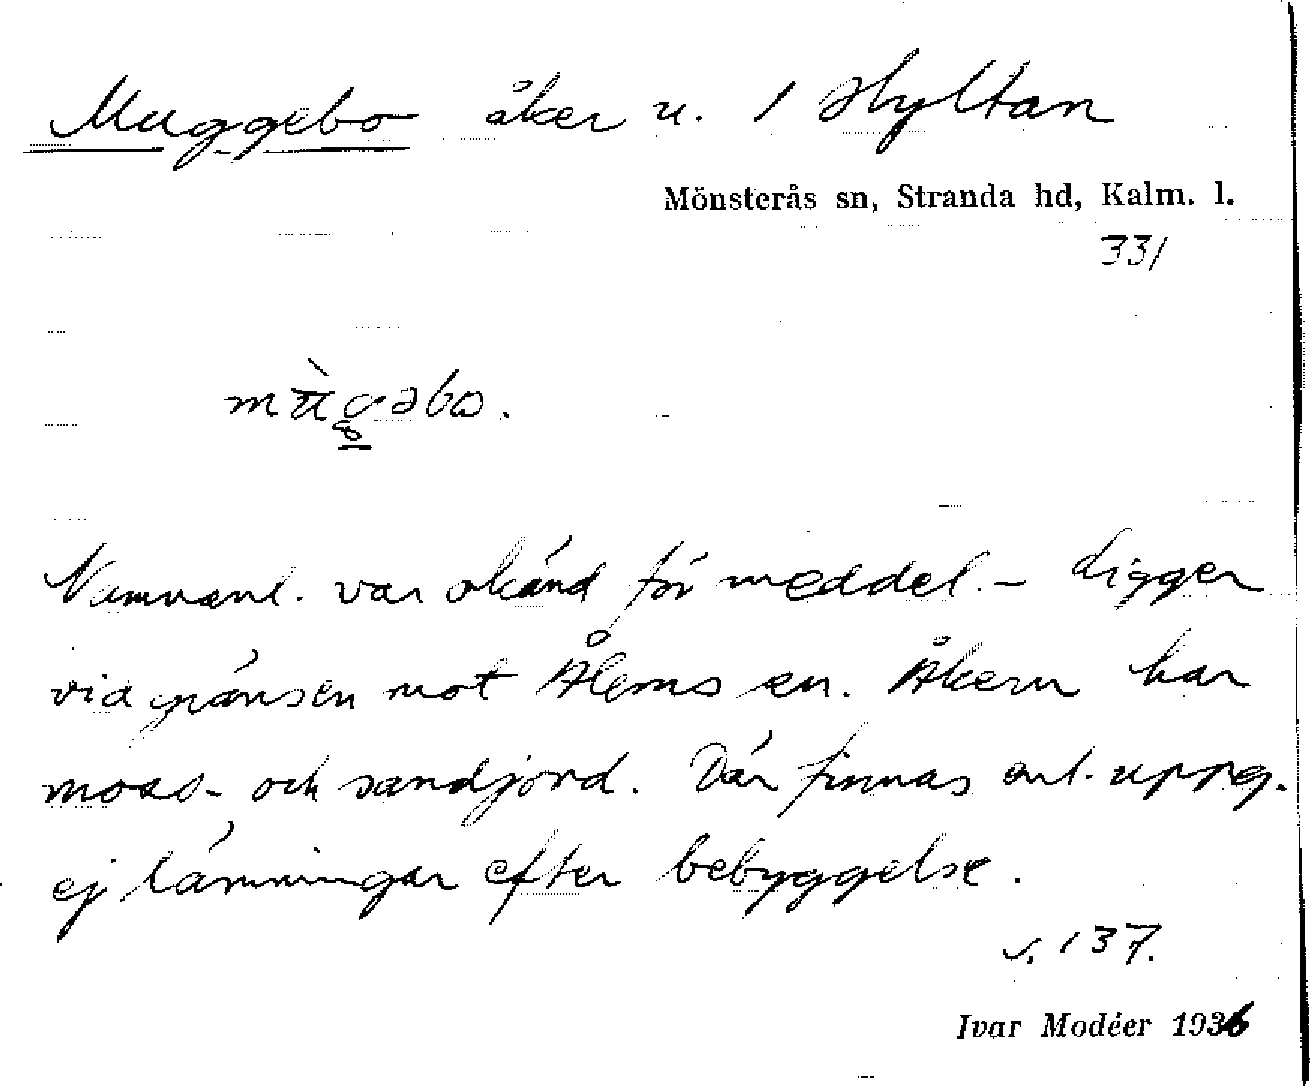 Muggebo åker u. 1 Hyltan
Mönsterås sn, Stranda hd, Kalm. l.
331
Namnanl. var okänd för meddel. – Ligger
vid gränsen mot Ålems sn. Åkern har
moss- och sandjord. Där finnas enl. uppg.
ej lämningar efter bebyggelse.
s. 137.
Ivar Modéer 1936